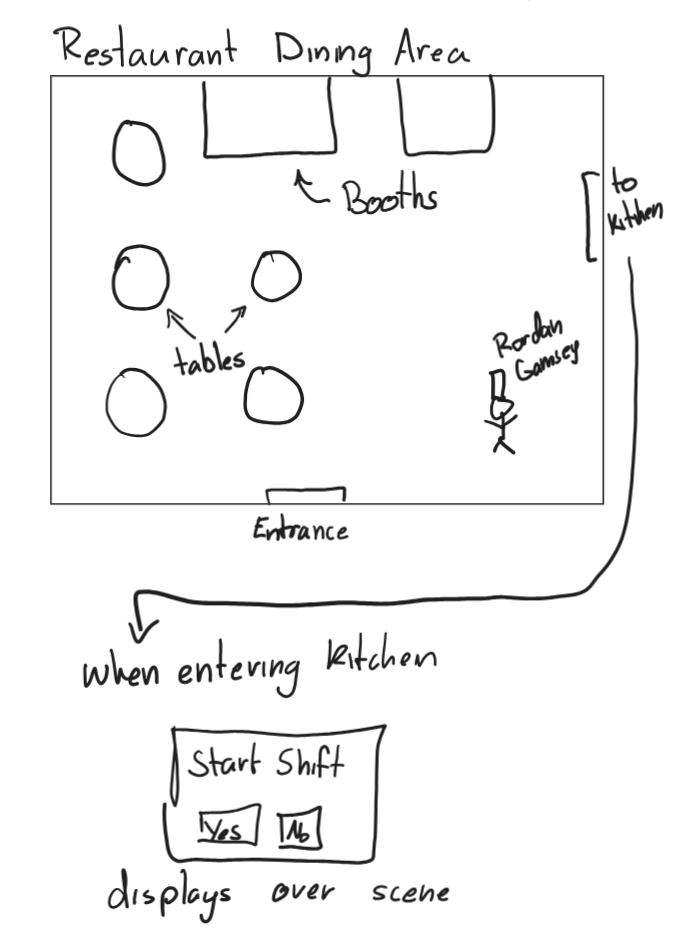 Restaurant Dining Area
Booths
to
kitchen
tables
Rordan
Gamsey
Entrance
when entering kitchen
Start Shift
Yes No
displays over scene